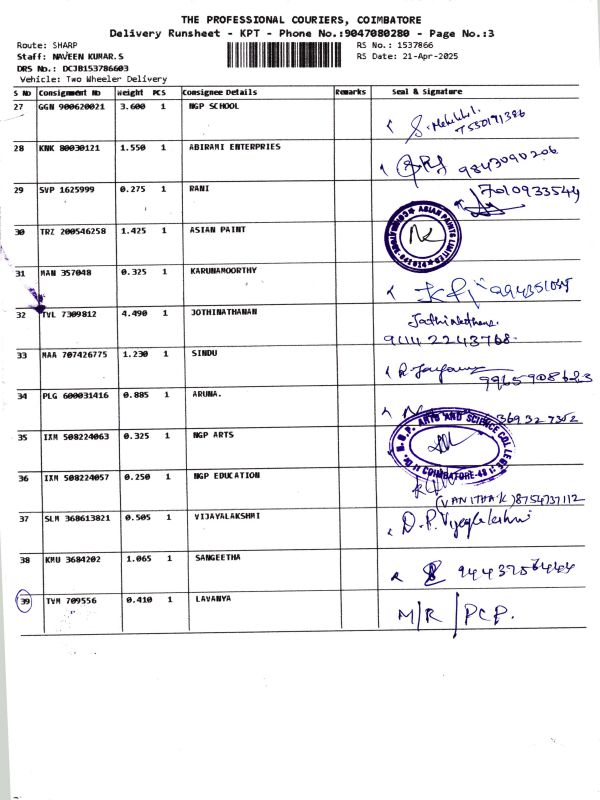 THE PROFESSIONAL COURIERS, COIMBATORE
Delivery Runsheet - KPT - Phone No.:9047080280 - Page No.:3
Route: SHARP RS No.: 1537866
Staff: NAVEEN KUMAR.S RS Date: 21-Apr-2025
DRS No.: DCJB153786603
Vehicle: Two Wheeler Delivery
S No Consignment No Weight PCS Consignee Details Remarks Seal & Signature
27 GGN 900620021 3.600 1 NGP SCHOOL
7550191386
28 KNK 80030121 1.550 1 ABIRAMI ENTERPRIES
9843090206
29 SVP 1625999 0.275 1 RANI
7010933544
30 TRZ 200546258 1.425 1 ASIAN PAINT
ASIAN PAINTS LIMITED
31 MAN 357048 0.325 1 KARUNAMOORTHY
32 TVL 7309812 4.490 1 JOTHINATHANAN
33 MAA 707426775 1.230 1 SINDU
34 PLG 600031416 0.885 1 ARUNA.
35 IXM 508224063 0.325 1 NGP ARTS
ARTS AND SCIENCE COLLEGE
COIMBATORE-48
36 IXM 508224057 0.250 1 NGP EDUCATION
(VANITHA.K) 8754737112
37 SLM 368613821 0.505 1 VIJAYALAKSHMI
D.P. Vijayalakshmi
38 KMU 3684202 1.065 1 SANGEETHA
39 TVM 709556 0.410 1 LAVANYA
M/R/PCP.